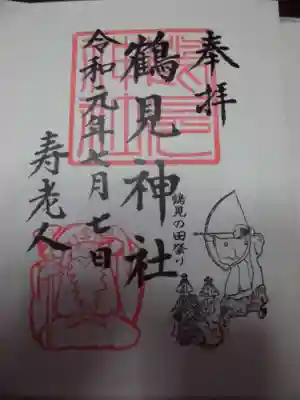 奉拝
鶴見神社
令和元年七月七日
寿老人
鶴見の田祭り